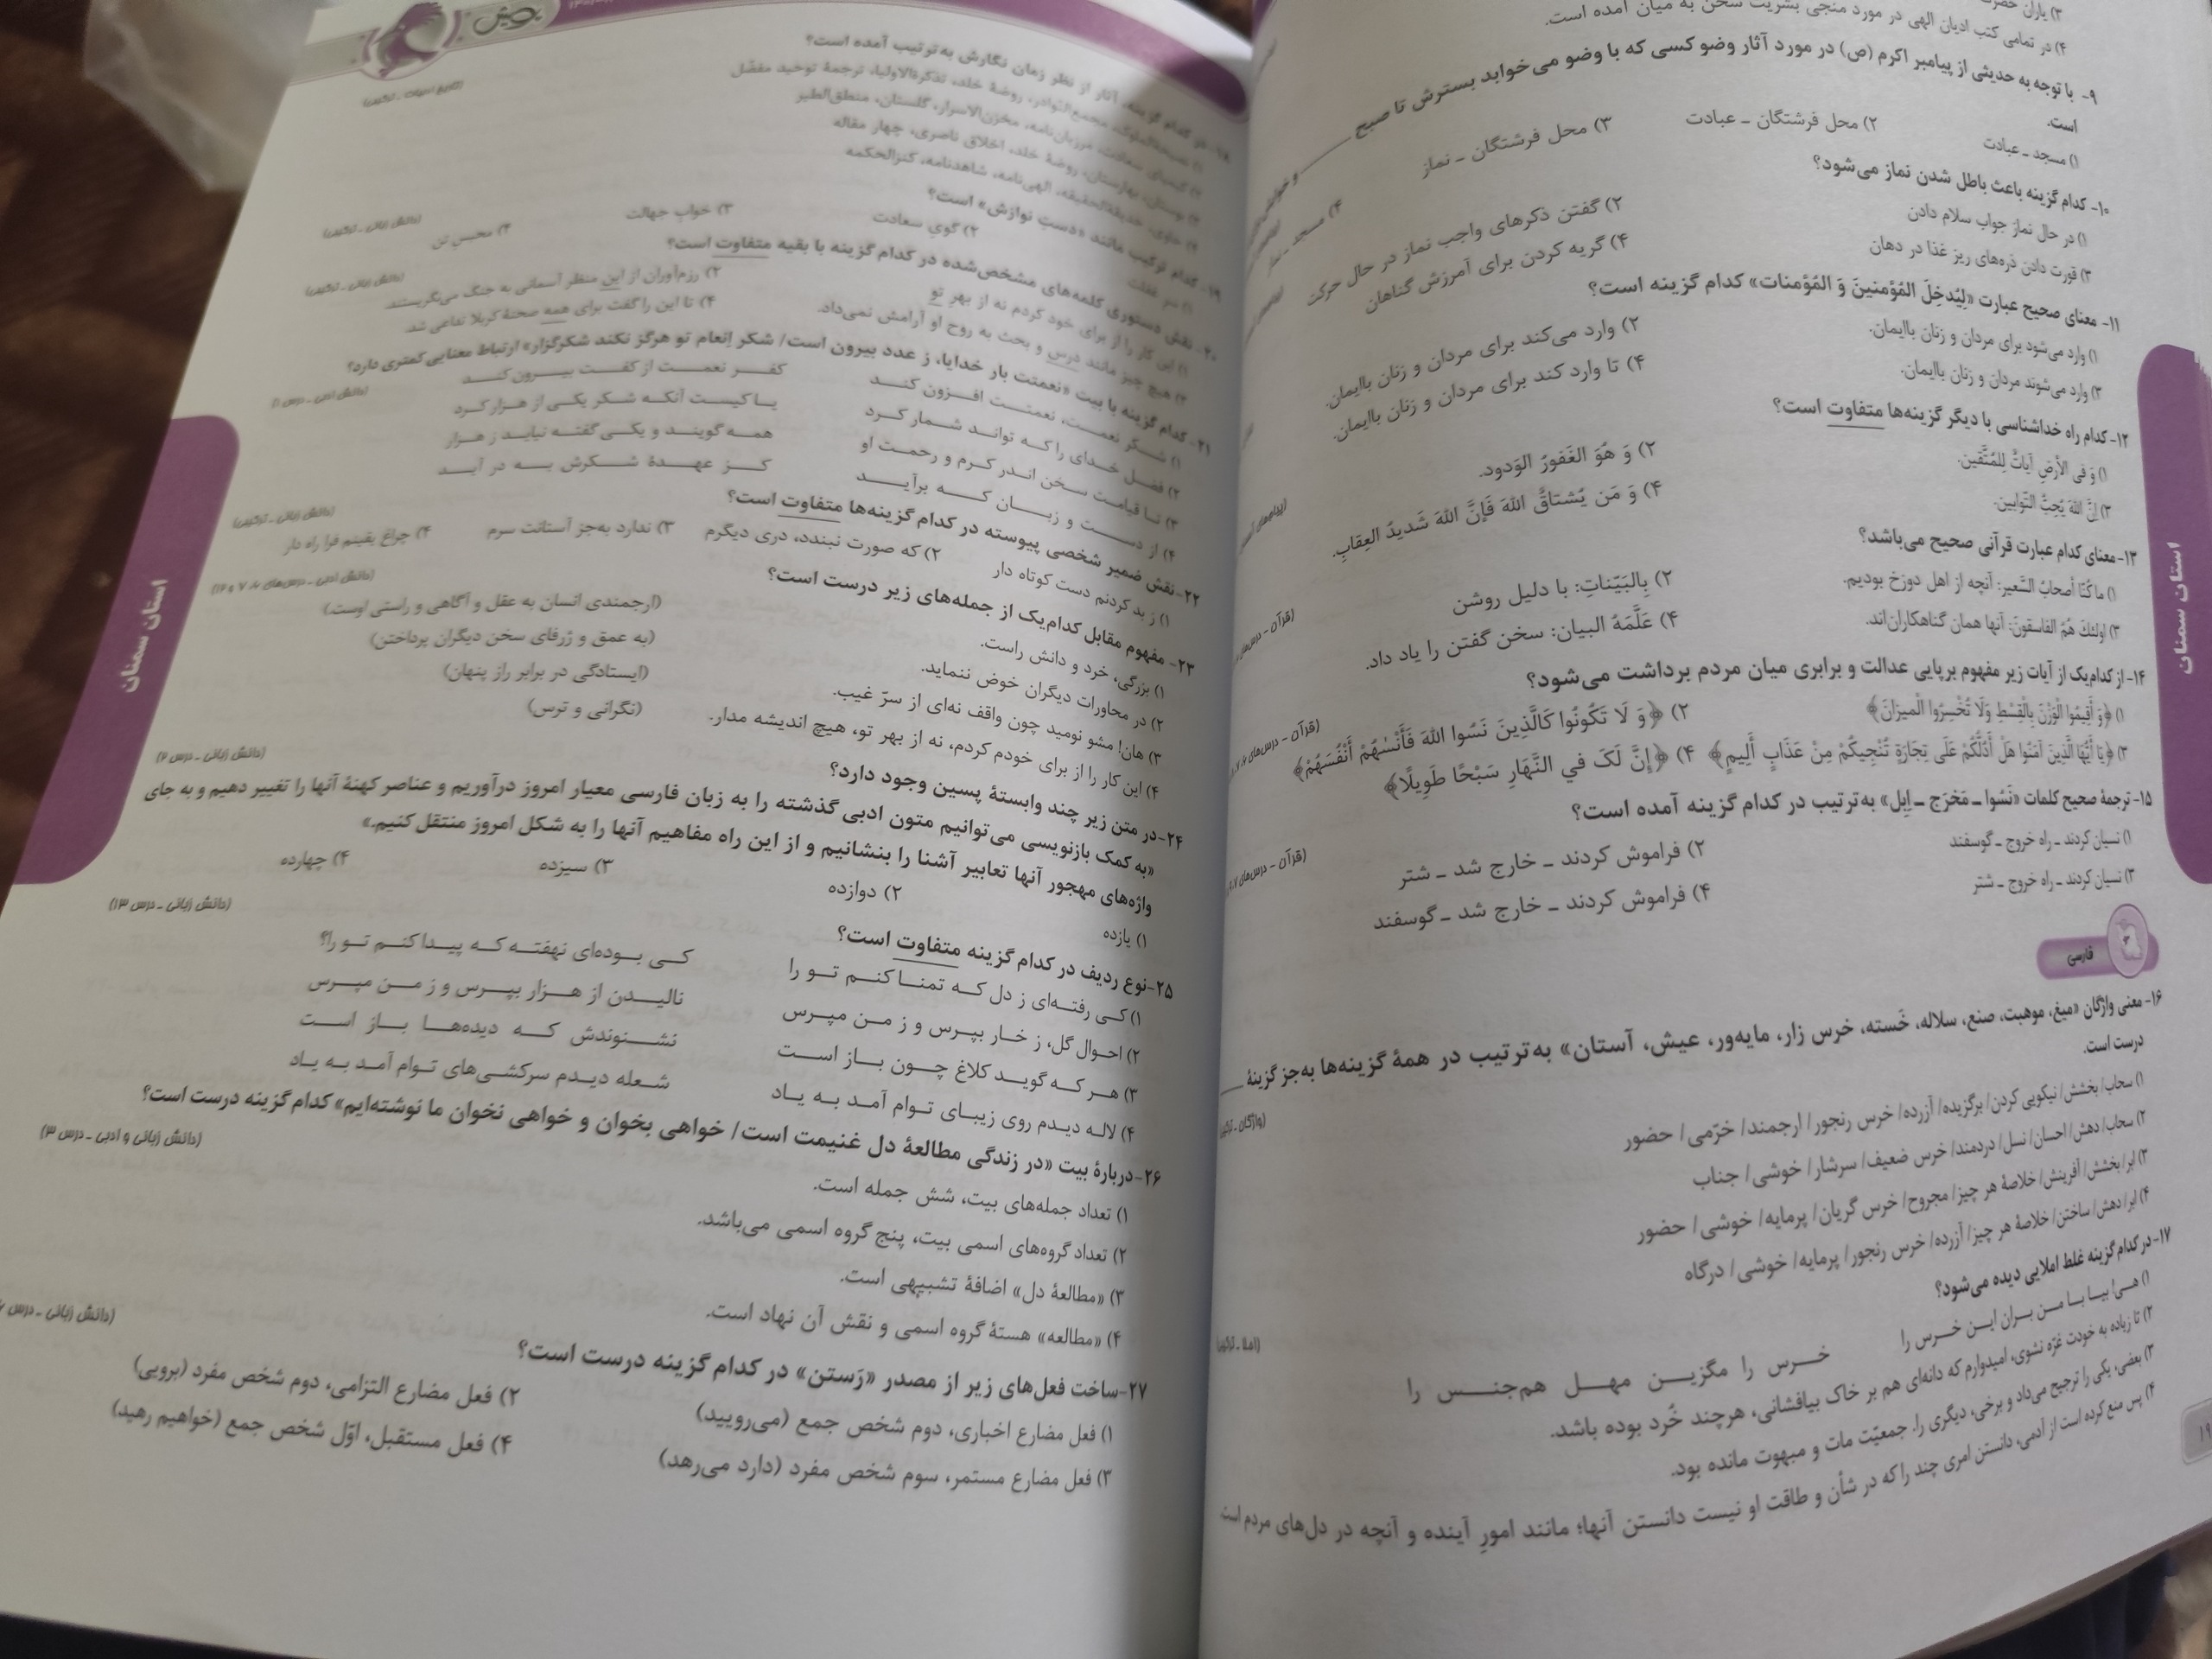 ۳) یاران
۴) در تمامی کتب ادیان الهی در مورد منجی بشریت سخن به میان آمده است.
۹- با توجه به حدیثی از پیامبر اکرم (ص) در مورد آثار وضو کسی که با وضو می‌خوابد بسترش تا صبح ـــــ و
است.
۱) مسجد ـ عبادت
۲) محل فرشتگان ـ عبادت
۳) محل فرشتگان ـ نماز
۴) مسجد ـ نماز
۱۰- کدام گزینه باعث باطل شدن نماز می‌شود؟
۱) در حال نماز جواب سلام دادن
۲) گفتن ذکرهای واجب نماز در حال حرکت
۳) قورت دادن ذره‌های ریز غذا در دهان
۴) گریه کردن برای آمرزش گناهان
۱۱- معنای صحیح عبارت «لِیُدخِلَ المُؤمنینَ وَ المُؤمنات» کدام گزینه است؟
۱) وارد می‌شود برای مردان و زنان باایمان.
۲) وارد می‌کند برای مردان و زنان باایمان.
۳) وارد می‌شوند مردان و زنان باایمان.
۴) تا وارد کند برای مردان و زنان باایمان.
۱۲- کدام راه خداشناسی با دیگر گزینه‌ها متفاوت است؟
۱) وَ فی الأرضِ آیاتٌ لِلمُتَّقین.
۲) وَ هُوَ الغَفورُ الوَدود.
۳) إنَّ اللهَ یُحِبُّ التَّوابین.
۴) وَ مَن یُشتاقُّ اللهَ فَإنَّ اللهَ شَدیدُ العِقابِ.
۱۳- معنای کدام عبارت قرآنی صحیح می‌باشد؟
۱) ما کُنّا أصحابُ السَّعیر: آنچه از اهل دوزخ بودیم.
۲) بِالبَیّناتِ: با دلیل روشن
۳) اولئکَ هُمُ الفاسقونَ: آنها همان گناهکاران‌اند.
۴) عَلَّمَهُ البیان: سخن گفتن را یاد داد.
۱۴- از کدام‌یک از آیات زیر مفهوم برپایی عدالت و برابری میان مردم برداشت می‌شود؟
۱) ﴿وَ أَقِیمُوا الْوَزْنَ بِالْقِسْطِ وَلَا تُخْسِرُوا الْمِیزَانَ﴾
۲) ﴿وَ لَا تَکُونُوا کَالَّذِینَ نَسُوا اللهَ فَأَنْسَاهُمْ أَنْفُسَهُمْ﴾
۳) ﴿یَا أَیُّهَا الَّذِینَ آمَنُوا هَلْ أَدُلُّکُمْ عَلَی تِجَارَةٍ تُنْجِیکُمْ مِنْ عَذَابٍ أَلِیمٍ﴾
۴) ﴿إِنَّ لَکَ فِی النَّهَارِ سَبْحًا طَوِیلًا﴾
۱۵- ترجمهٔ صحیح کلمات «نَسُوا ـ مَخرَج ـ إبِل» به‌ترتیب در کدام گزینه آمده است؟
۱) نسیان کردند ـ راه خروج ـ گوسفند
۲) فراموش کردند ـ خارج شد ـ شتر
۳) نسیان کردند ـ راه خروج ـ شتر
۴) فراموش کردند ـ خارج شد ـ گوسفند
فارسی
۱۶- معنی واژگان «میغ، موهبت، صنع، سلاله، خَسته، خرس زار، مایه‌ور، عیش، آستان» به‌ترتیب در همهٔ گزینه‌ها به‌جز گزینهٔ ـــــ
درست است.
۱) سحاب/ بخشش/ نیکویی کردن/ برگزیده/ آزرده/ خرس رنجور/ ارجمند/ خرّمی/ حضور
۲) سحاب/ دهش/ احسان/ نسل/ دردمند/ خرس ضعیف/ سرشار/ خوشی/ جناب
۳) ابر/ بخشش/ آفرینش/ خلاصهٔ هر چیز/ مجروح/ خرس گریان/ پرمایه/ خوشی/ حضور
۴) ابر/ دهش/ ساختن/ خلاصهٔ هر چیز/ آزرده/ خرس رنجور/ پرمایه/ خوشی/ درگاه
۱۷- در کدام گزینه غلط املایی دیده می‌شود؟
۱) هی! بیا با من بران این خرس را
خرس را مگزین مهل هم‌جنس را
۲) تا زیاده به خودت غرّه نشوی، امیدوارم که دانه‌ای هم بر خاک بیافشانی، هرچند خُرد بوده باشد.
۳) بعضی، یکی را ترجیح می‌داد و برخی، دیگری را. جمعیّت مات و مبهوت مانده بود.
۴) پس منع کرده است از آدمی، دانستن امری چند را که در شأن و طاقت او نیست دانستن آنها؛ مانند امورِ آینده و آنچه در دل‌های مردم است
استان سمنان
۱۸- در کدام گزینه، آثار از نظر زمان نگارش به‌ترتیب آمده است؟
۱) نصیحة‌الملوک، مجمع‌النوادر، روضهٔ خلد، تذکرةالاولیا، ترجمهٔ توحید مفضّل
۲) کیمیای سعادت، مرزبان‌نامه، مخزن‌الاسرار، گلستان، منطق‌الطیر
۳) بوستان، بهارستان، روضهٔ خلد، اخلاق ناصری، چهار مقاله
۴) حدیقةالحقیقه، الهی‌نامه، شاهدنامه، کنزالحکمه
۱۹- کدام ترکیب مانند «دست نوازش» است؟
۱) سر غفلت
۲) گوی سعادت
۳) خواب جهالت
۴) محبس تن
۲۰- نقش دستوری کلمه‌های مشخص‌شده در کدام گزینه با بقیه متفاوت است؟
۱) این کار را از برای خود کردم نه از بهر تو
۲) رزم‌آوران از این منظر آسمانی به جنگ می‌نگریستند.
۳) هیچ چیز مانند درس و بحث به روح او آرامش نمی‌داد.
۴) تا این را گفت برای همه صحنهٔ کربلا تداعی شد.
۲۱- کدام گزینه با بیت «نعمتت بار خدایا، ز عدد بیرون است/ شکر اِنعام تو هرگز نکند شکرگزار» ارتباط معنایی کمتری دارد؟
۱) شکر نعمت، نعمتت افزون کند
کفر نعمت از کفت بیرون کند
۲) فضل خدای را که تواند شمار کرد
یا کیست آنکه شکر یکی از هزار کرد
۳) تا قیامت سخن اندر کرم و رحمت او
همه گویند و یکی گفته نیاید ز هزار
۴) از دست و زبان که برآید
کز عهدهٔ شکرش به در آید
۲۲- نقش ضمیر شخصی پیوسته در کدام گزینه‌ها متفاوت است؟
۱) ز بد کردنم دست کوتاه دار
۲) که صورت نبندد، دری دیگرم
۳) ندارد به‌جز آستانت سرم
۴) چراغ یقینم فرا راه دار
۲۳- مفهوم مقابل کدام‌یک از جمله‌های زیر درست است؟
۱) بزرگی، خرد و دانش راست.
(ارجمندی انسان به عقل و آگاهی و راستی اوست.)
۲) در محاورات دیگران خوض ننماید.
(به عمق و ژرفای سخن دیگران پرداختن)
۳) هان! مشو نومید چون واقف نه‌ای از سرّ غیب.
(ایستادگی در برابر راز پنهان)
۴) این کار را از برای خودم کردم، نه از بهر تو، هیچ اندیشه مدار.
(نگرانی و ترس)
۲۴- در متن زیر چند وابستهٔ پسین وجود دارد؟
«به کمک بازنویسی می‌توانیم متون ادبی گذشته را به زبان فارسی معیار امروز درآوریم و عناصر کهنهٔ آنها را تغییر دهیم و به جای
واژه‌های مهجور آنها تعابیر آشنا را بنشانیم و از این راه مفاهیم آنها را به شکل امروز منتقل کنیم.»
۱) یازده
۲) دوازده
۳) سیزده
۴) چهارده
۲۵- نوع ردیف در کدام گزینه متفاوت است؟
۱) کی رفته‌ای ز دل که تمنا کنم تو را
کی بوده‌ای نهفته که پیدا کنم تو را؟
۲) احوال گل، ز خار بپرس و ز من مپرس
نالیدن از هزار بپرس و ز من مپرس
۳) هر که گوید کلاغ چون باز است
نشنوندش که دیده‌ها باز است
۴) لاله دیدم روی زیبای توام آمد به یاد
شعله دیدم سرکشی‌های توام آمد به یاد
۲۶- دربارهٔ بیت «در زندگی مطالعهٔ دل غنیمت است/ خواهی بخوان و خواهی نخوان ما نوشته‌ایم» کدام گزینه درست است؟
۱) تعداد جمله‌های بیت، شش جمله است.
۲) تعداد گروه‌های اسمی بیت، پنج گروه اسمی می‌باشد.
۳) «مطالعهٔ دل» اضافهٔ تشبیهی است.
۴) «مطالعه» هستهٔ گروه اسمی و نقش آن نهاد است.
۲۷- ساخت فعل‌های زیر از مصدر «رَستن» در کدام گزینه درست است؟
۱) فعل مضارع اخباری، دوم شخص جمع (می‌رویید)
۲) فعل مضارع التزامی، دوم شخص مفرد (برویی)
۳) فعل مضارع مستمر، سوم شخص مفرد (دارد می‌رهد)
۴) فعل مستقبل، اوّل شخص جمع (خواهیم رهید)
استان سمنان